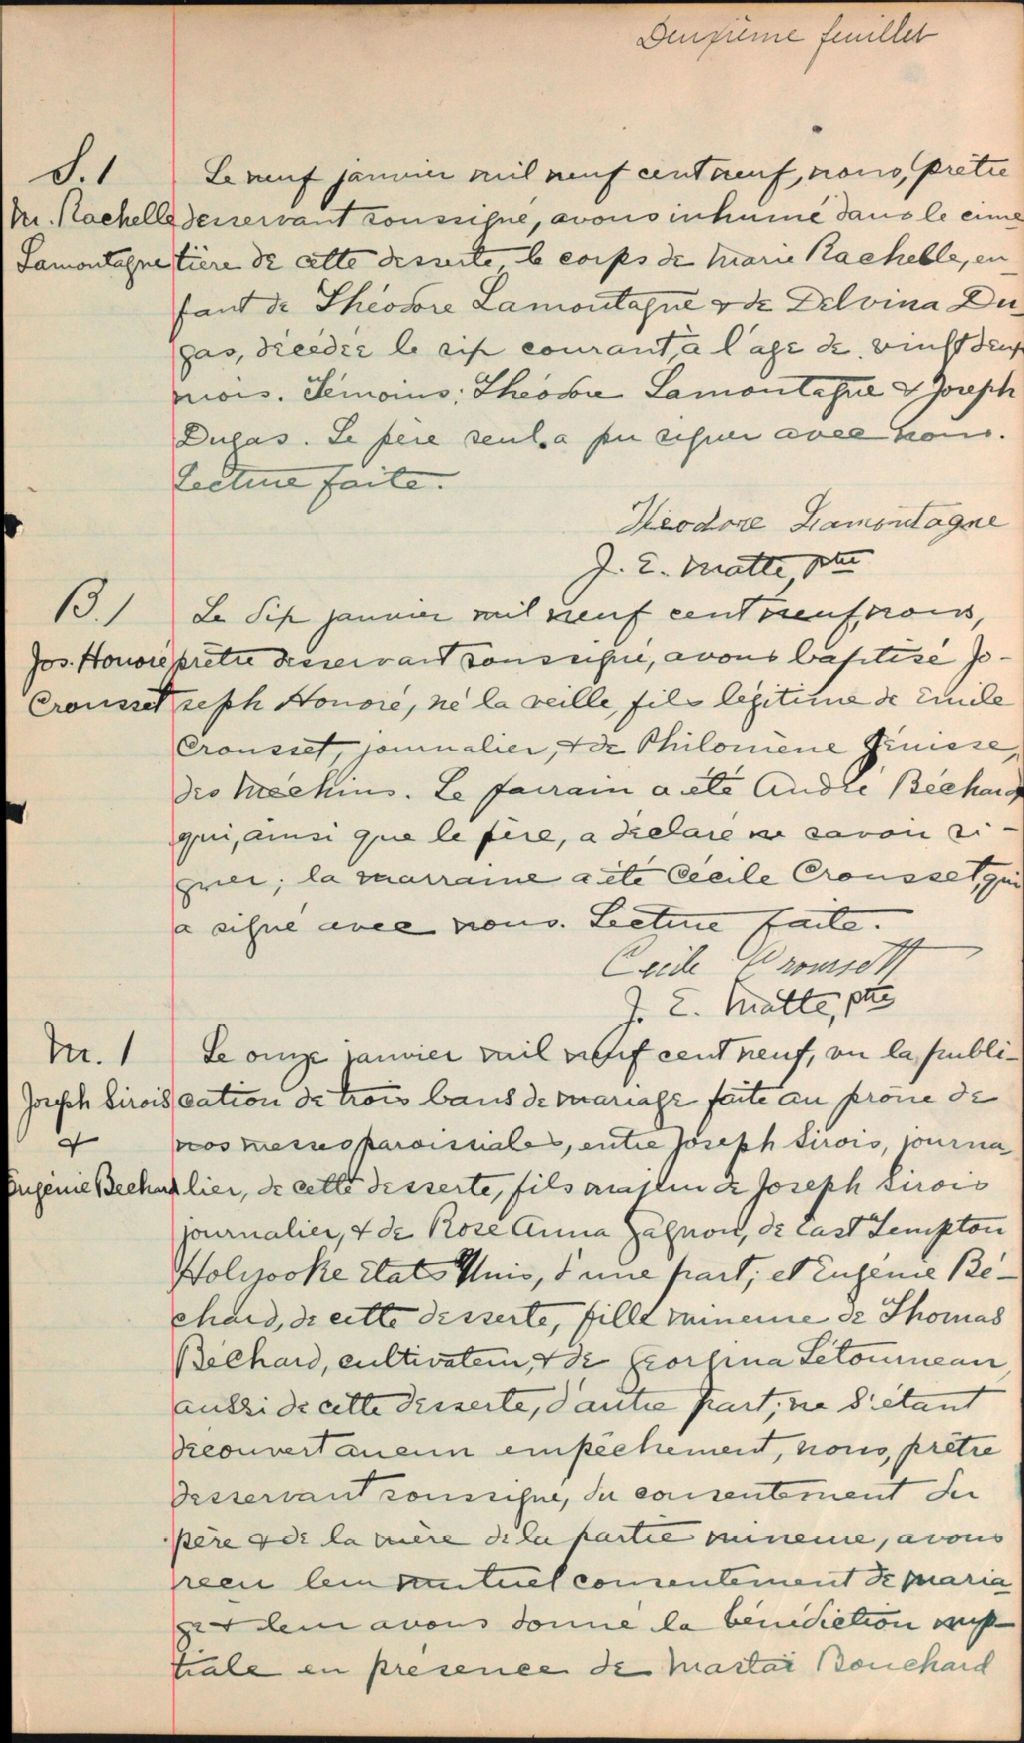 Deuxième feuillet
S. 1
M. Rachelle
Lamontagne
Le neuf janvier mil neuf cent neuf, nous, prêtre
desservant soussigné, avons inhumé dans le cime
tière de cette desserte, le corps de Marie Rachelle, en
fant de Théodore Lamontagne & de Delvina Du
gas, décédée le six courant, à l'age de vingt deux
mois. Témoins: Théodore Lamontagne & Joseph
Dugas. Le père seul a pu signer avec nous.
Lecture faite.
Théodore Lamontagne
J. E. Matte, ptre
B. 1
Jos. Honoré
Crousset
Le dix janvier mil neuf cent neuf, nous,
prêtre desservant soussigné, avons baptisé Jo-
seph Honoré, né la veille, fils légitime de Emile
Crousset, journalier, & de Philomène Génisse,
des Méchins. Le parrain a été André Béchard
qui, ainsi que le père, a déclaré ne savoir si-
gner; la marraine a été Cécile Crousset, qui
a signé avec nous. Lecture faite.
Cecile Croussett
J. E. Matte, ptre
M. 1
Joseph Sirois
&
Eugénie Bechard
Le onze janvier mil neuf cent neuf, vu la publi-
cation de trois bans de mariage faite au prône de
nos messes paroissiales, entre Joseph Sirois, journa
lier, de cette desserte, fils majeur de Joseph Sirois
journalier, & de Rose Anna Gagnon, de East Tempton
Holyooke Etats Unis, d'une part; et Eugénie Bé-
chard, de cette desserte, fille mineure de Thomas
Béchard, cultivateur, & de Georgina Létourneau,
aussi de cette desserte, d'autre part; ne s'étant
découvert aucun empêchement, nous, prêtre
desservant soussigné, du consentement du
père & de la mère de la partie mineure, avons
reçu leur mutuel consentement de maria
ge & leur avons donné la bénédiction nup-
tiale en présence de Mastaï Bouchard